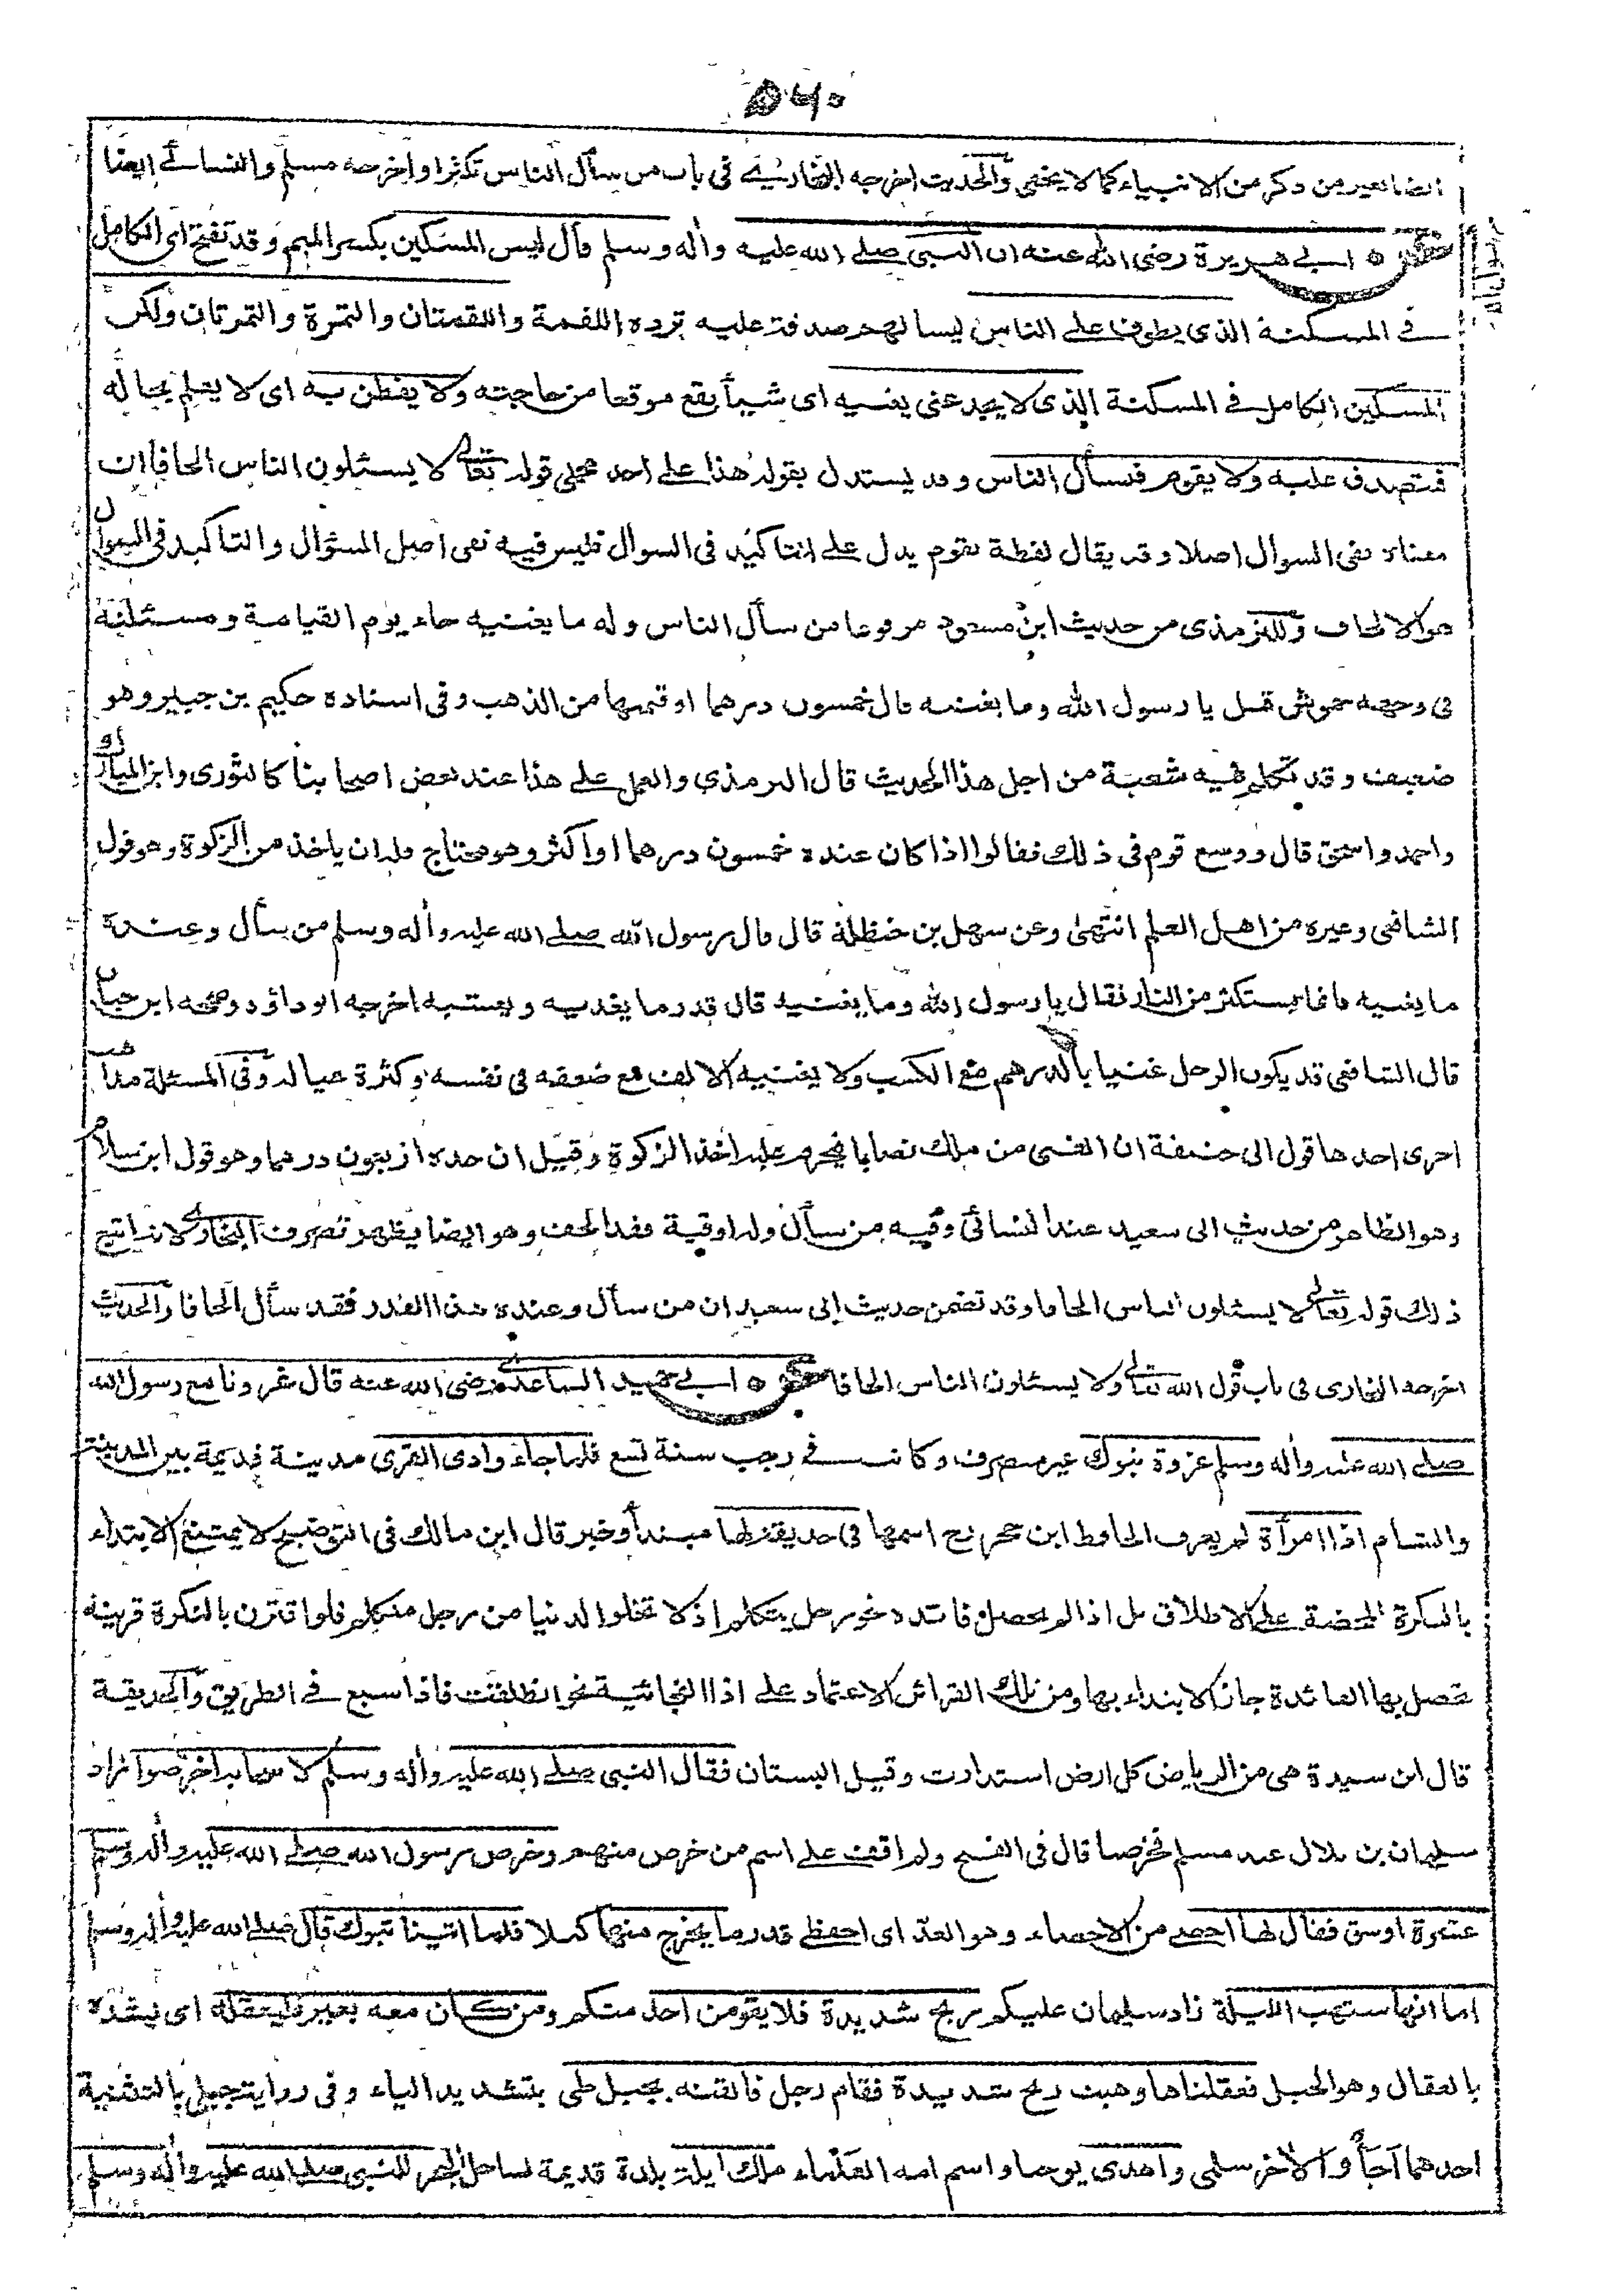 ۵۶۰
ايضا لغير من ذكر من الانبياء كما لا يخفى والحديث اخرجه البخارى فى باب من سأل الناس تكثرا واخرجه مسلم والنسائى ايضا
عن ابى هريرة رضى الله عنه ان النبى صلى الله عليه واله وسلم قال ليس المسكين بكسر الميم وقد تفتح اى الكامل
فى المسكنة الذى يطوف على الناس ليسألهم صدقة عليه ترده اللقمة واللقمتان والتمرة والتمرتان ولكن
المسكين الكامل فى المسكنة الذى لا يجد غنى يغنيه اى شيأ يقع موقعا من حاجته ولا يفطن به اى لا يعلم بحاله
فتصدق عليه ولا يقوم فيسأل الناس وقد يستدل بقوله هذا على احد محملى قوله تعالى لا يسئلون الناس الحافا ان
معناه نفى السوال اصلا وقد يقال لفظة يقوم يدل على التاكيد فى السوال فليس فيه نفى اصل السؤال والتاكيد فى السوال
هو الالحاف وللترمذى من حديث ابن مسعود مرفوعا من سأل الناس وله ما يغنيه جاء يوم القيامة ومسئلته
فى وجهه خموش قيل يا رسول الله وما يغنيه قال خمسون درهما او قيمتها من الذهب وفى اسناده حكيم بن جبير وهو
ضعيف وقد تكلم فيه شعبة من اجل هذا الحديث قال الترمذى والعمل على هذا عند بعض اصحابنا كالثورى وابن المبارك
واحمد واسحق قال ووسع قوم فى ذلك فقالوا اذا كان عنده خمسون درهما او اكثر وهو محتاج فله ان ياخذ من الزكوة وهو قول
الشافعى وغيره من اهل العلم انتهى وعن سهل بن حنظلة قال قال رسول الله صلى الله عليه واله وسلم من سأل وعنده
ما يغنيه فانما يستكثر من النار فقال يا رسول الله وما يغنيه قال قدر ما يغديه ويعشيه اخرجه ابو داؤد وصححه ابن حبان
قال الشافعى قد يكون الرجل غنيا بالدرهم مع الكسب ولا يغنيه الالف مع ضعفه فى نفسه وكثرة عياله وفى المسئلة مذاهب
اخرى احدها قول ابى حنيفة ان الغنى من ملك نصابا فيحرم عليه اخذ الزكوة وقيل ان حده اربعون درهما وهو قول ابن سلام
وهو الظاهر من حديث ابى سعيد عند النسائى وفيه من سأل وله اوقية فقد الحف وهو ايضا يظهر تصرف البخارى لانه اتبع
ذلك قوله تعالى لا يسئلون الناس الحافا وقد تضمن حديث ابى سعيد ان من سأل وعنده هذا القدر فقد سأل الحافا والحديث
اخرجه البخارى فى باب قول الله تعالى لا يسئلون الناس الحافا عن ابى حميد الساعدى رضى الله عنه قال غزونا مع رسول الله
صلى الله عليه واله وسلم غزوة تبوك غير منصرف وكانت فى رجب سنة تسع فلما جاء وادى القرى مدينة قديمة بين المدينة
والشام اذا امرأة لم يعرف الحافظ ابن حجر اسمها فى حديقة لها مبتدأ وخبر قال ابن مالك فى التوضيح لا يمتنع الابتداء
بالنكرة المحضة على الاطلاق بل اذا لم يحصل فائدة نحو رجل يتكلم اذ لا تخلو الدنيا من رجل متكلم فلو اقترن بالنكرة قرينة
تحصل بها الفائدة جاز الابتداء بها ومن تلك القرائن الاعتماد على اذا الفجائية نحو انطلقت فاذا سبع فى الطريق والحديقة
قال ابن سيدة هى من الرياض كل ارض استدارت وقيل البستان فقال النبى صلى الله عليه واله وسلم لاصحابه اخرصوا زاد
سليمان بن بلال عند مسلم فخرصنا قال فى الفتح ولم اقف على اسم من خرص منهم وخرص رسول الله صلى الله عليه واله وسلم
عشرة اوسق فقال لها احصى من الاحصاء وهو العد اى احفظى قدر ما يخرج منها كيلا فلما اتينا تبوك قال صلى الله عليه واله وسلم
اما انها ستهب الليلة زاد سليمان عليكم ريح شديدة فلا يقومن احد منكم ومن كان معه بعير فليعقله اى يشده
بالعقال وهو الحبل فعقلناها وهبت ريح شديدة فقام رجل فالقته بجبل طى بتشديد الياء وفى رواية جبلى بالتثنية
احدهما اجأ والاخر سلمى واهدى يوحنا واسم امه العلماء ملك ايلة بلدة قديمة لساحل البحر للنبى صلى الله عليه واله وسلم